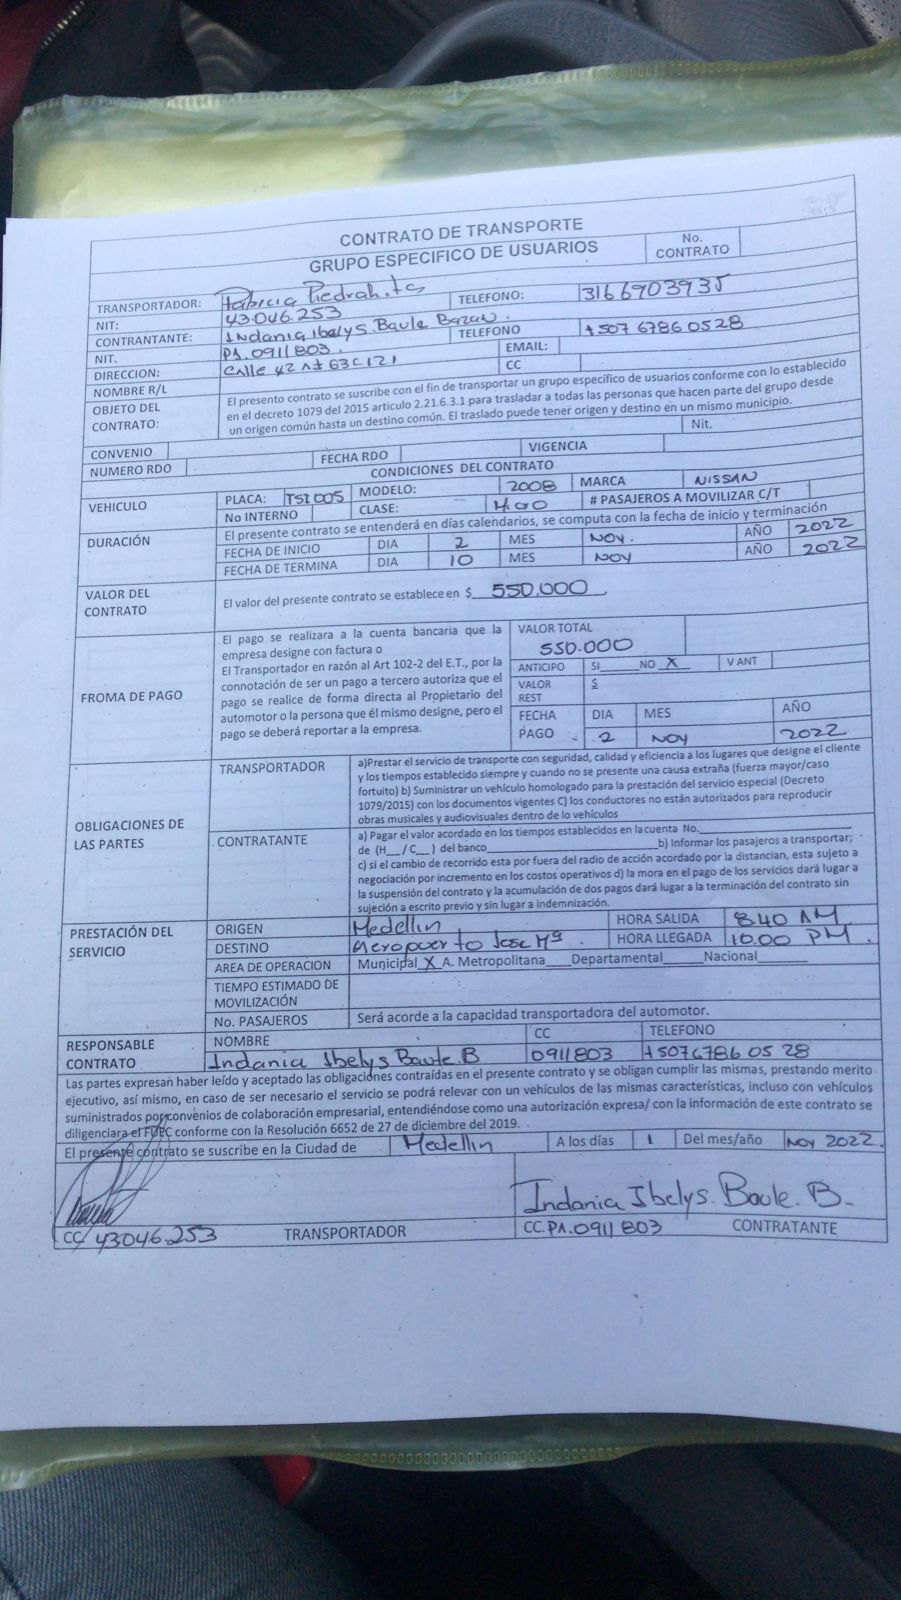 CONTRATO DE TRANSPORTE
GRUPO ESPECIFICO DE USUARIOS
No. CONTRATO
TRANSPORTADOR: Patricia Piedrahita TELEFONO: 3166903935
NIT: 43.046.253
CONTRANTANTE: Indania Ibelys Baule Bazan. TELEFONO +507 6786 0528
NIT. PA.0911803. EMAIL:
DIRECCION: Calle 42 n# 63C121 CC
NOMBRE R/L
OBJETO DEL CONTRATO: El presento contrato se suscribe con el fin de transportar un grupo específico de usuarios conforme con lo establecido
en el decreto 1079 del 2015 articulo 2.21.6.3.1 para trasladar a todas las personas que hacen parte del grupo desde
un origen común hasta un destino común. El traslado puede tener origen y destino en un mismo municipio.
CONVENIO Nit.
NUMERO RDO FECHA RDO VIGENCIA
CONDICIONES DEL CONTRATO
VEHICULO PLACA: TSI005 MODELO: 2008 MARCA NISSAN
No INTERNO CLASE: Micro # PASAJEROS A MOVILIZAR C/T
DURACIÓN El presente contrato se entenderá en días calendarios, se computa con la fecha de inicio y terminación
FECHA DE INICIO DIA 2 MES NOV. AÑO 2022
FECHA DE TERMINA DIA 10 MES NOV AÑO 2022
VALOR DEL CONTRATO El valor del presente contrato se establece en $ 550.000
FROMA DE PAGO
El pago se realizara a la cuenta bancaria que la
empresa designe con factura o
El Transportador en razón al Art 102-2 del E.T., por la
connotación de ser un pago a tercero autoriza que el
pago se realice de forma directa al Propietario del
automotor o la persona que él mismo designe, pero el
pago se deberá reportar a la empresa.
VALOR TOTAL
550.000
ANTICIPO SI____NO X V ANT
VALOR REST $
FECHA PAGO DIA MES AÑO
2 NOV 2022
OBLIGACIONES DE LAS PARTES
TRANSPORTADOR
a)Prestar el servicio de transporte con seguridad, calidad y eficiencia a los lugares que designe el cliente
y los tiempos establecido siempre y cuando no se presente una causa extraña (fuerza mayor/caso
fortuito) b) Suministrar un vehículo homologado para la prestación del servicio especial (Decreto
1079/2015) con los documentos vigentes C) los conductores no están autorizados para reproducir
obras musicales y audiovisuales dentro de lo vehículos
CONTRATANTE
a) Pagar el valor acordado en los tiempos establecidos en la cuenta No.____
de (H__/C__) del banco____b) Informar los pasajeros a transportar;
c) si el cambio de recorrido esta por fuera del radio de acción acordado por la distancian, esta sujeto a
negociación por incremento en los costos operativos d) la mora en el pago de los servicios dará lugar a
la suspensión del contrato y la acumulación de dos pagos dará lugar a la terminación del contrato sin
sujeción a escrito previo y sin lugar a indemnización.
PRESTACIÓN DEL SERVICIO
ORIGEN Medellin HORA SALIDA 8:40 AM
DESTINO Aeropuerto Jose Mª. HORA LLEGADA 10.00 PM.
AREA DE OPERACION Municipal X A. Metropolitana____Departamental____Nacional____
TIEMPO ESTIMADO DE MOVILIZACIÓN
No. PASAJEROS Será acorde a la capacidad transportadora del automotor.
RESPONSABLE CONTRATO
NOMBRE CC TELEFONO
Indania Ibelys Baule.B 0911803 +5076786 05 28
Las partes expresan haber leído y aceptado las obligaciones contraídas en el presente contrato y se obligan cumplir las mismas, prestando merito
ejecutivo, así mismo, en caso de ser necesario el servicio se podrá relevar con un vehículos de las mismas características, incluso con vehículos
suministrados por convenios de colaboración empresarial, entendiéndose como una autorización expresa/ con la información de este contrato se
diligenciara el FUEC conforme con la Resolución 6652 de 27 de diciembre del 2019.
El presente contrato se suscribe en la Ciudad de Medellin A los días 1 Del mes/año NOV 2022.
Indania Ibelys. Baule. B.
CC. 43046.253 TRANSPORTADOR CC.PA.0911803 CONTRATANTE